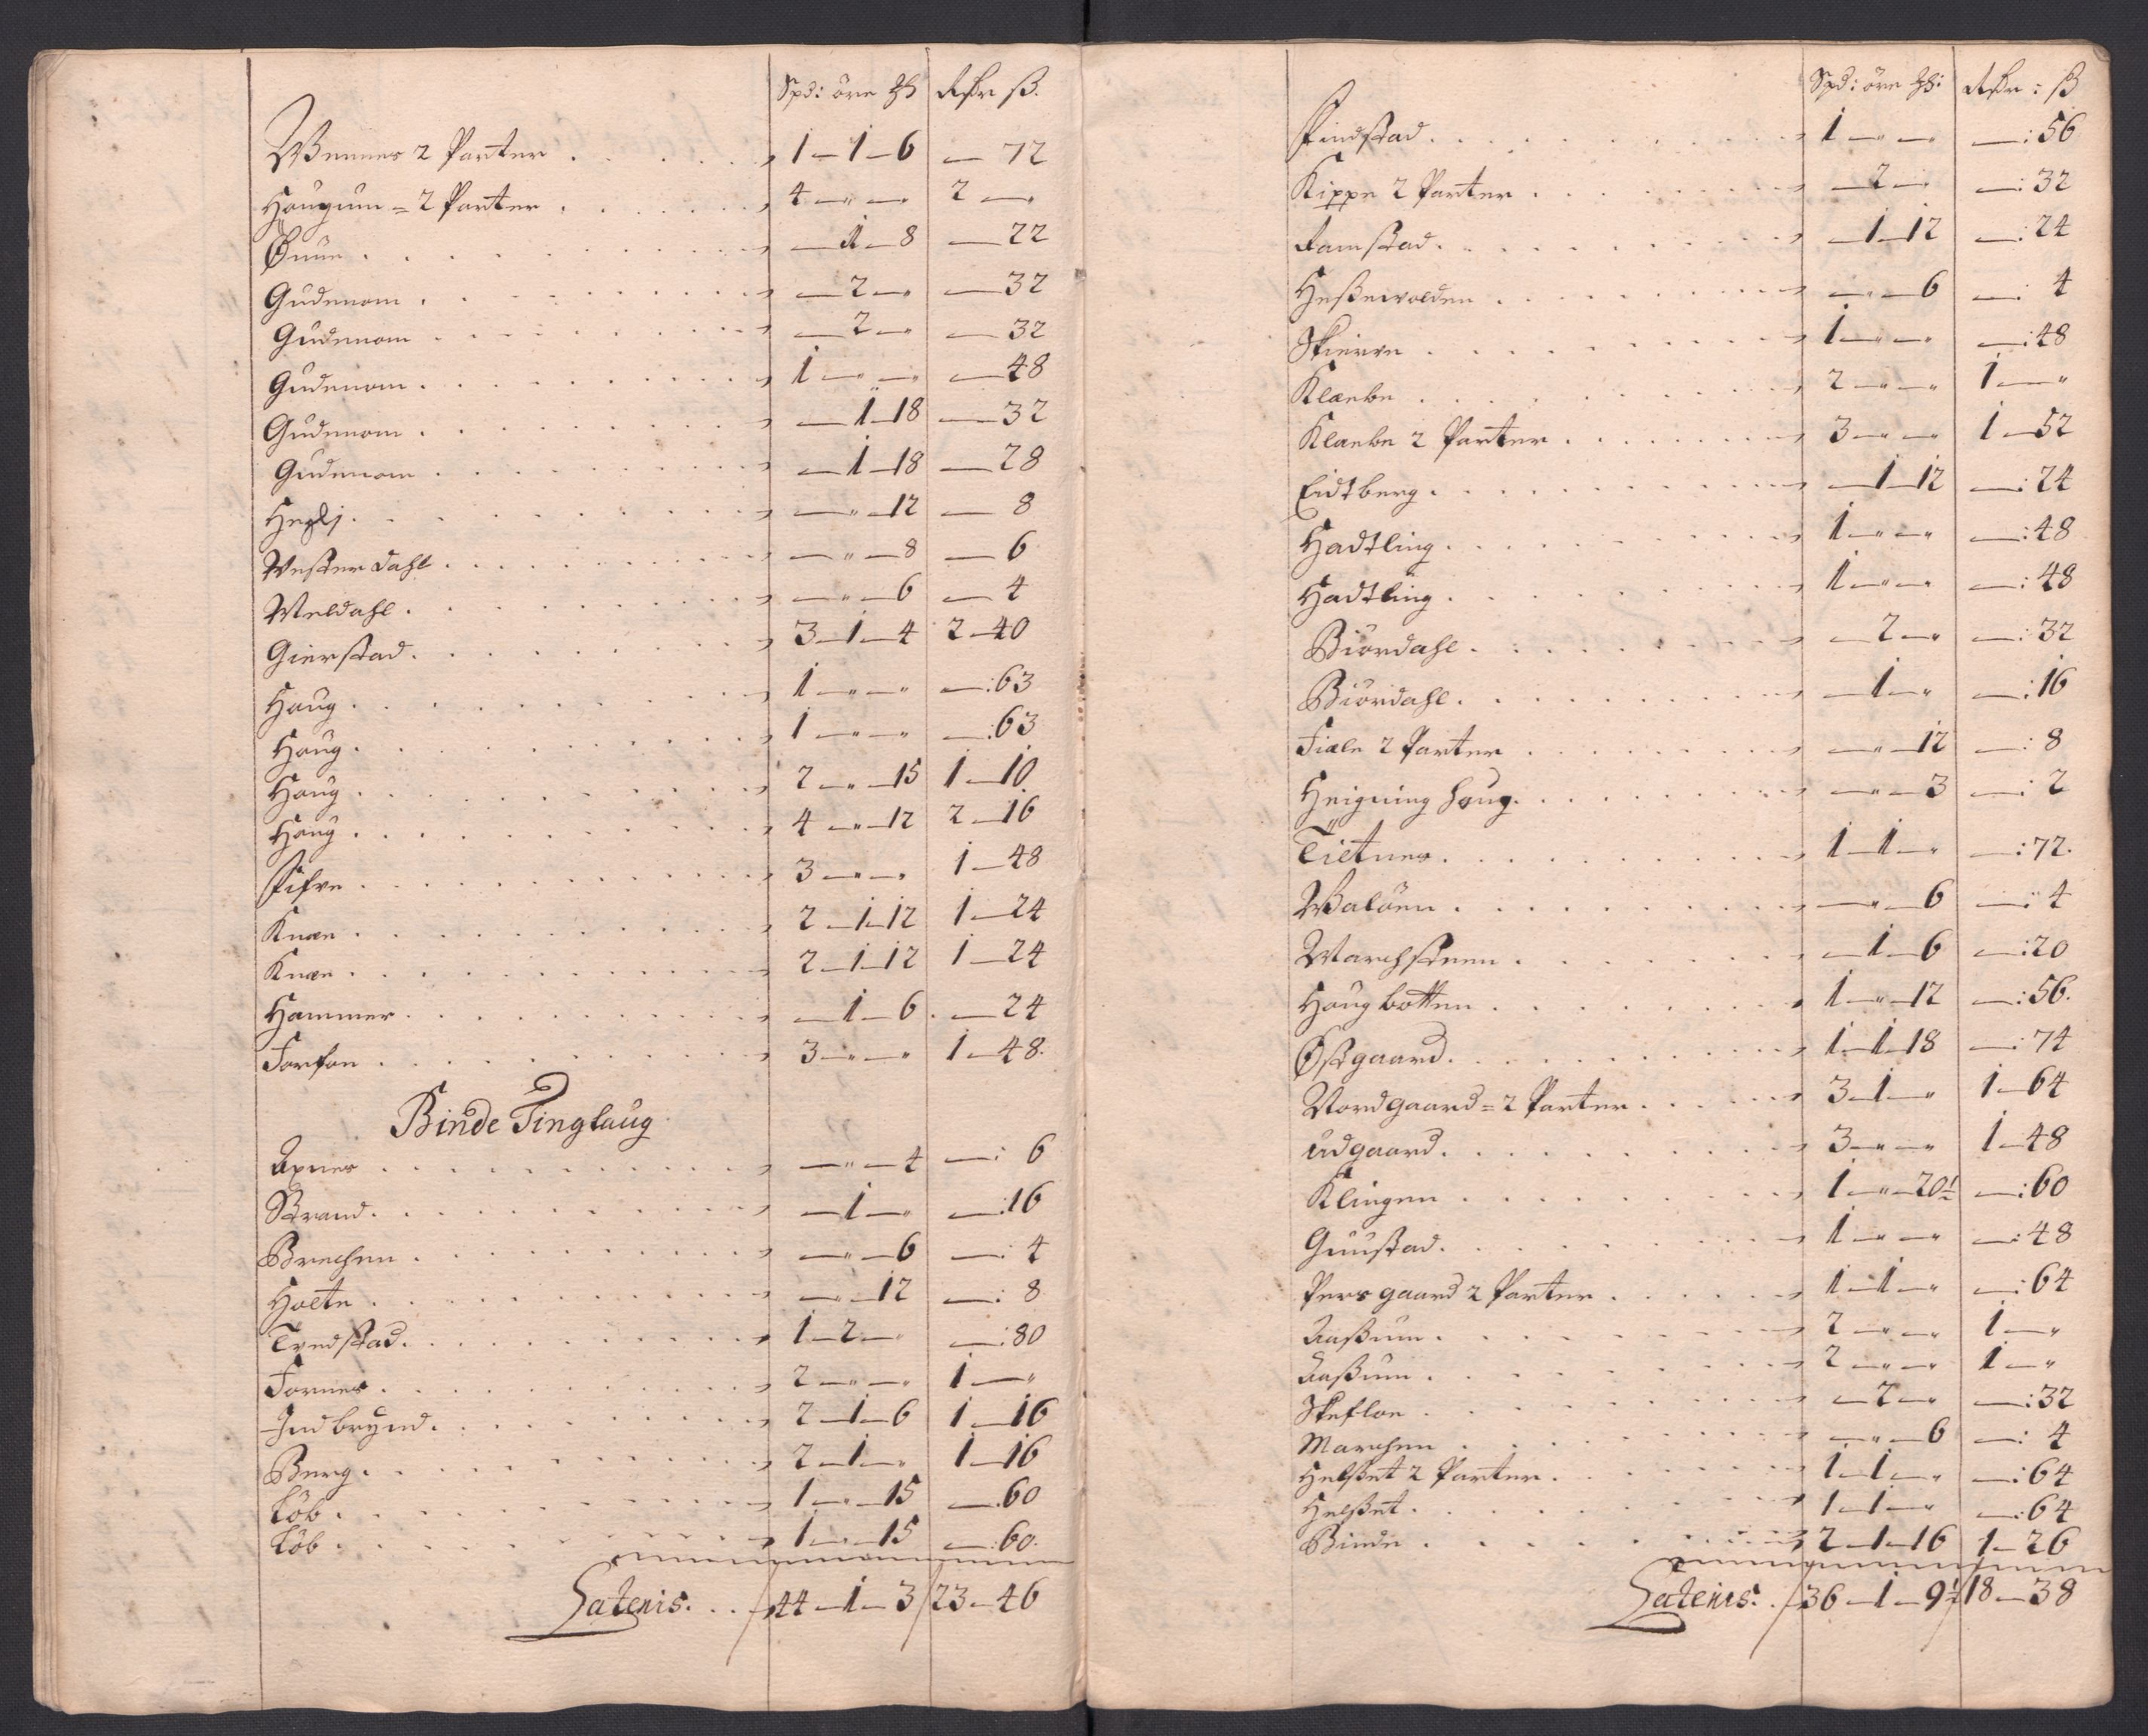 Spd: öre ℔ Rdr ß.
Wennes 2 Parter . . . . . 1—1—6 — 72
Haugum = 2 Parter . . . . . 4 —„— 2 —„
Ønne . . . . . —1—8 — 22
Gudenom . . . . . —2—„ — 32
Gudenom . . . . . —2—„ — 32
Gudenom . . . . . 1 —„— — 48
Gudenom . . . . . —1—18 — 32
Gudenom . . . . . —1—18 — 28
Heglj . . . . . —„—12 — 8
Westerdahl . . . . . —„—8 — 6
Weldahl . . . . . —„—6 — 4
Gierstad . . . . . 3—1—4 2—40
Haug . . . . . 1—„—„ —:63
Haug . . . . . 1—„—„ —:63
Haug . . . . . 2—„—15 1—10
Haug . . . . . 4—„—12 2—16
. . . . . 3—„—„ 1—48
Knæe . . . . . 2—1—12 1—24
Knæe . . . . . 2—1—12 1—24
Hammer . . . . . —1—6 — 24
. . . . . 3—„—„ 1—48
Binde Tinglaug
Axnes . . . . . —„—4 —: 6
Strand . . . . . —1—„ —:16
Brechen . . . . . —„—6 —: 4
Holte . . . . . —„—12 —: 8
Tredstad . . . . . 1—2—„ —:80
Fornes . . . . . 2—„—„ 1—„
Indbrynd . . . . . 2—1—6 1—16
Berg . . . . . 2—1—„ 1—16
Löb . . . . . 1—„—15 —:60
Löb . . . . . 1—„—15 —:60
Latenis . . 44—1—3 23—46
Spd: öre ℔: Rdr: ß
Findstad . . . . . 1—„— —:56
Kippe 2 Parter . . . . . —2—„ —:32
Ramstad . . . . . —1—12 —:24
Heßewolden . . . . . —„—6 —: 4
Skierve . . . . . 1—„— —:48
Klæbe . . . . . 2—„—„ 1—„
Klæbe 2 Parter . . . . . 3—„— 1—52
Eidtberg . . . . . —1—12 —:24
Hadtling . . . . . 1—„—„ —:48
Hadtling . . . . . 1—„—„ —:48
Biördahl . . . . . —2—„ —:32
Biördahl . . . . . —1—„ —:16
Fiæle 2 Parter . . . . . —„—12 —: 8
Heigning haug . . . . . —„—3 —: 2
Tiltnes . . . . . 1—1—„ —:72.
Waløen . . . . . —„—6 —: 4
Warchsteen . . . . . —1—6 —:20
Haugbotten . . . . . 1—„—12 —:56.
Østgaard . . . . . 1—1—18 —:74
Nordgaard = 2 Parter . . . . . 3—1—„ 1—64
Udgaard . . . . . 3—„—„ 1—48
Klingen . . . . . 1—„—20½ —:60
Guustad . . . . . 1—„—„ —:48
Persgaard 2 Parter . . . . . 1—1—„ —:64
Aaßum . . . . . 2—„—„ 1—„
Aaßum . . . . . 2—„—„ 1—„
Skefloe . . . . . —2—„ —:32
Marchen . . . . . —„—6 —: 4
Helßet 2 Parter . . . . . 1—1—„ —:64
Helßet . . . . . 1—1—„ —:64
Binde . . . . . 2—1—16 1—26
Latenis: . 36—1—9½ 18—38